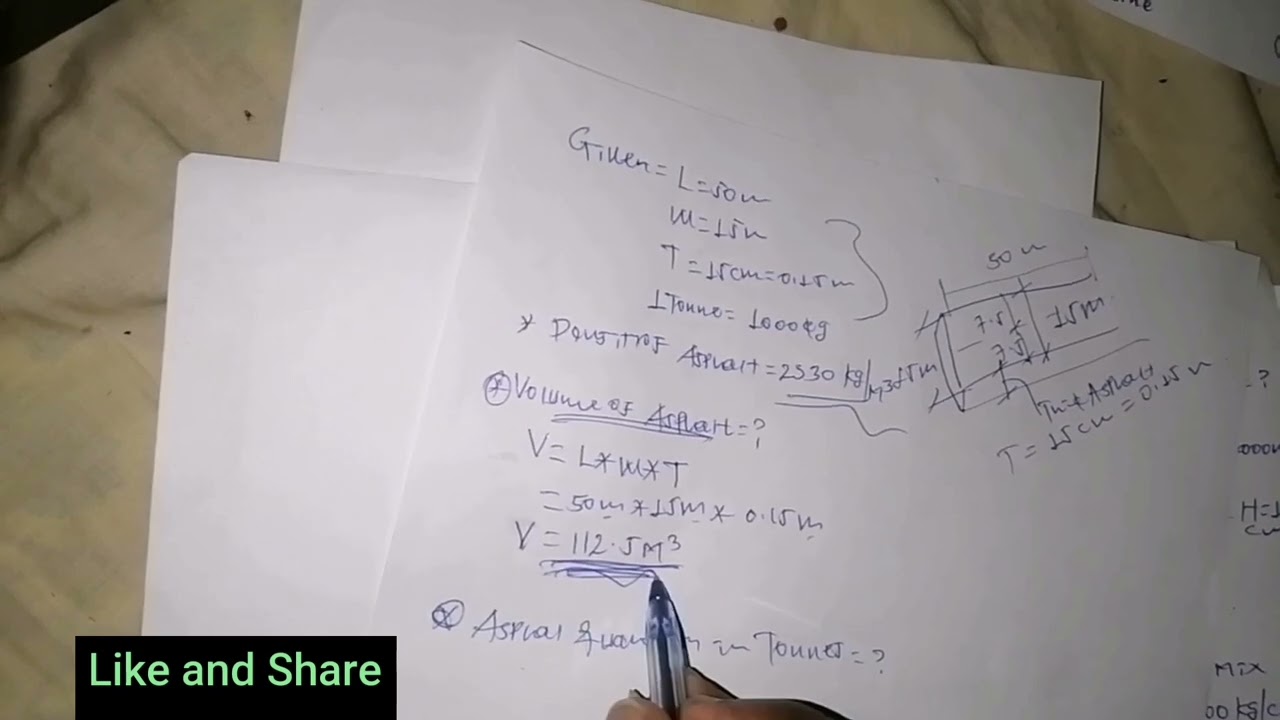 Given = L=50m
W=15m
T=15cm=0.15m
1Tonne= 1000kg
* Densityof Asphalt=2530 kg/M3
* Volume of Asphalt=?
V= L*W*T
=50m*15m* 0.15m
V= 112.5M3
* Asphal in Tonnes=?
50m
7.5
7.5
15m
15m
Asphalt
T=15cm=0.15m
?
H=1
Mix
00 kg/c
Like and Share